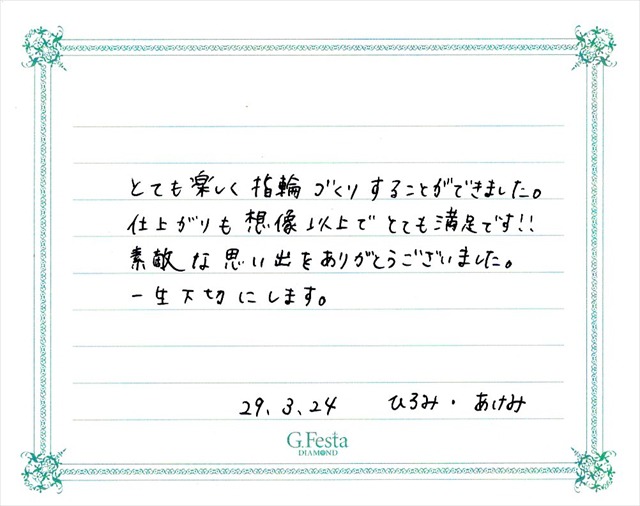 とても楽しく指輪づくりすることができました。
仕上がりも想像以上でとても満足です!!
素敵な思い出をありがとうございました。
一生大切にします。
29.3.24 ひろみ・あけみ
G.Festa
DIAMOND